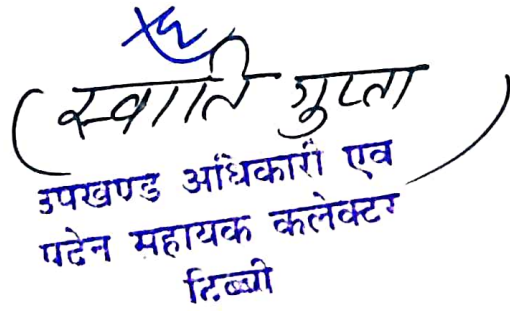 (स्वाति गुप्ता)
उपखण्ड अधिकारी एव
पदेन सहायक कलेक्टर
टिब्बी